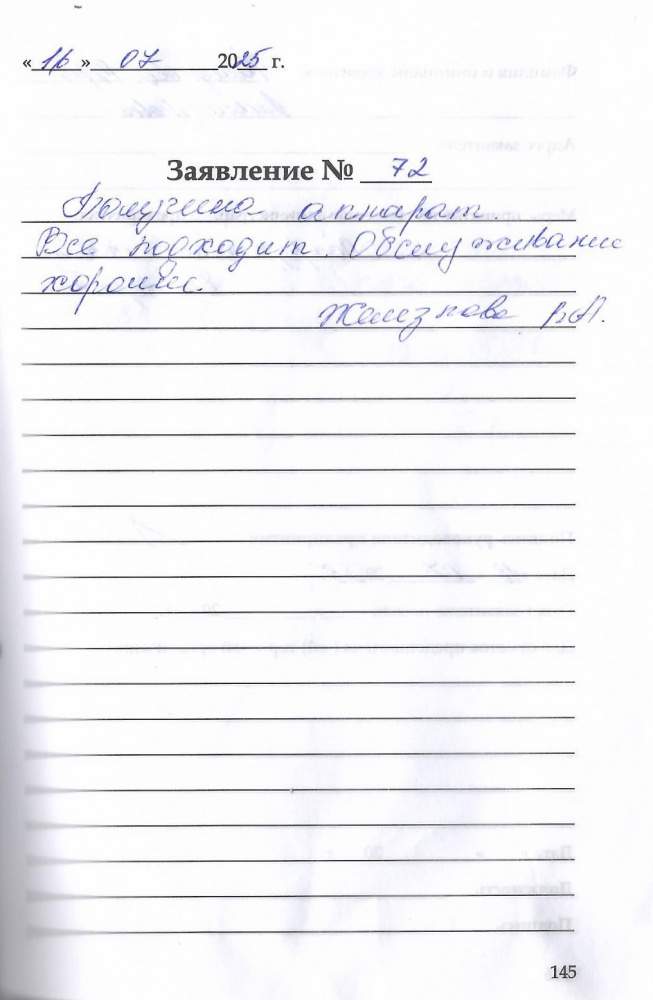 «16» 07 2025 г.
Заявление № 72
Получила аппарат.
Все подходит. Обслуживание
хорошее.
Железнова В.А.
145